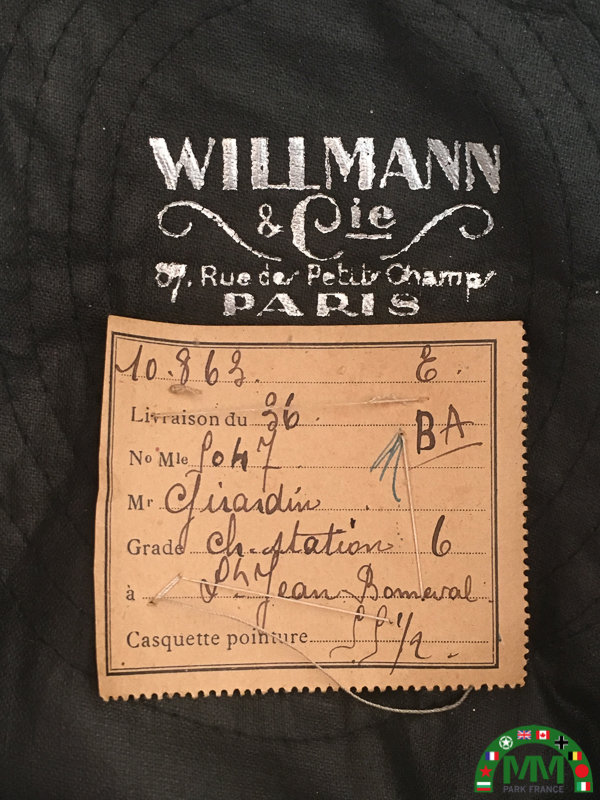 WILLMANN
& Cie
87, Rue des Petits Champs
PARIS
10.863. E.
Livraison du 26.
BA
No Mle 5047
Mr Girardin
Grade ch. station 6
à St Jean-Bonneval
Casquette pointure 55 1/2.
MM
PARK FRANCE